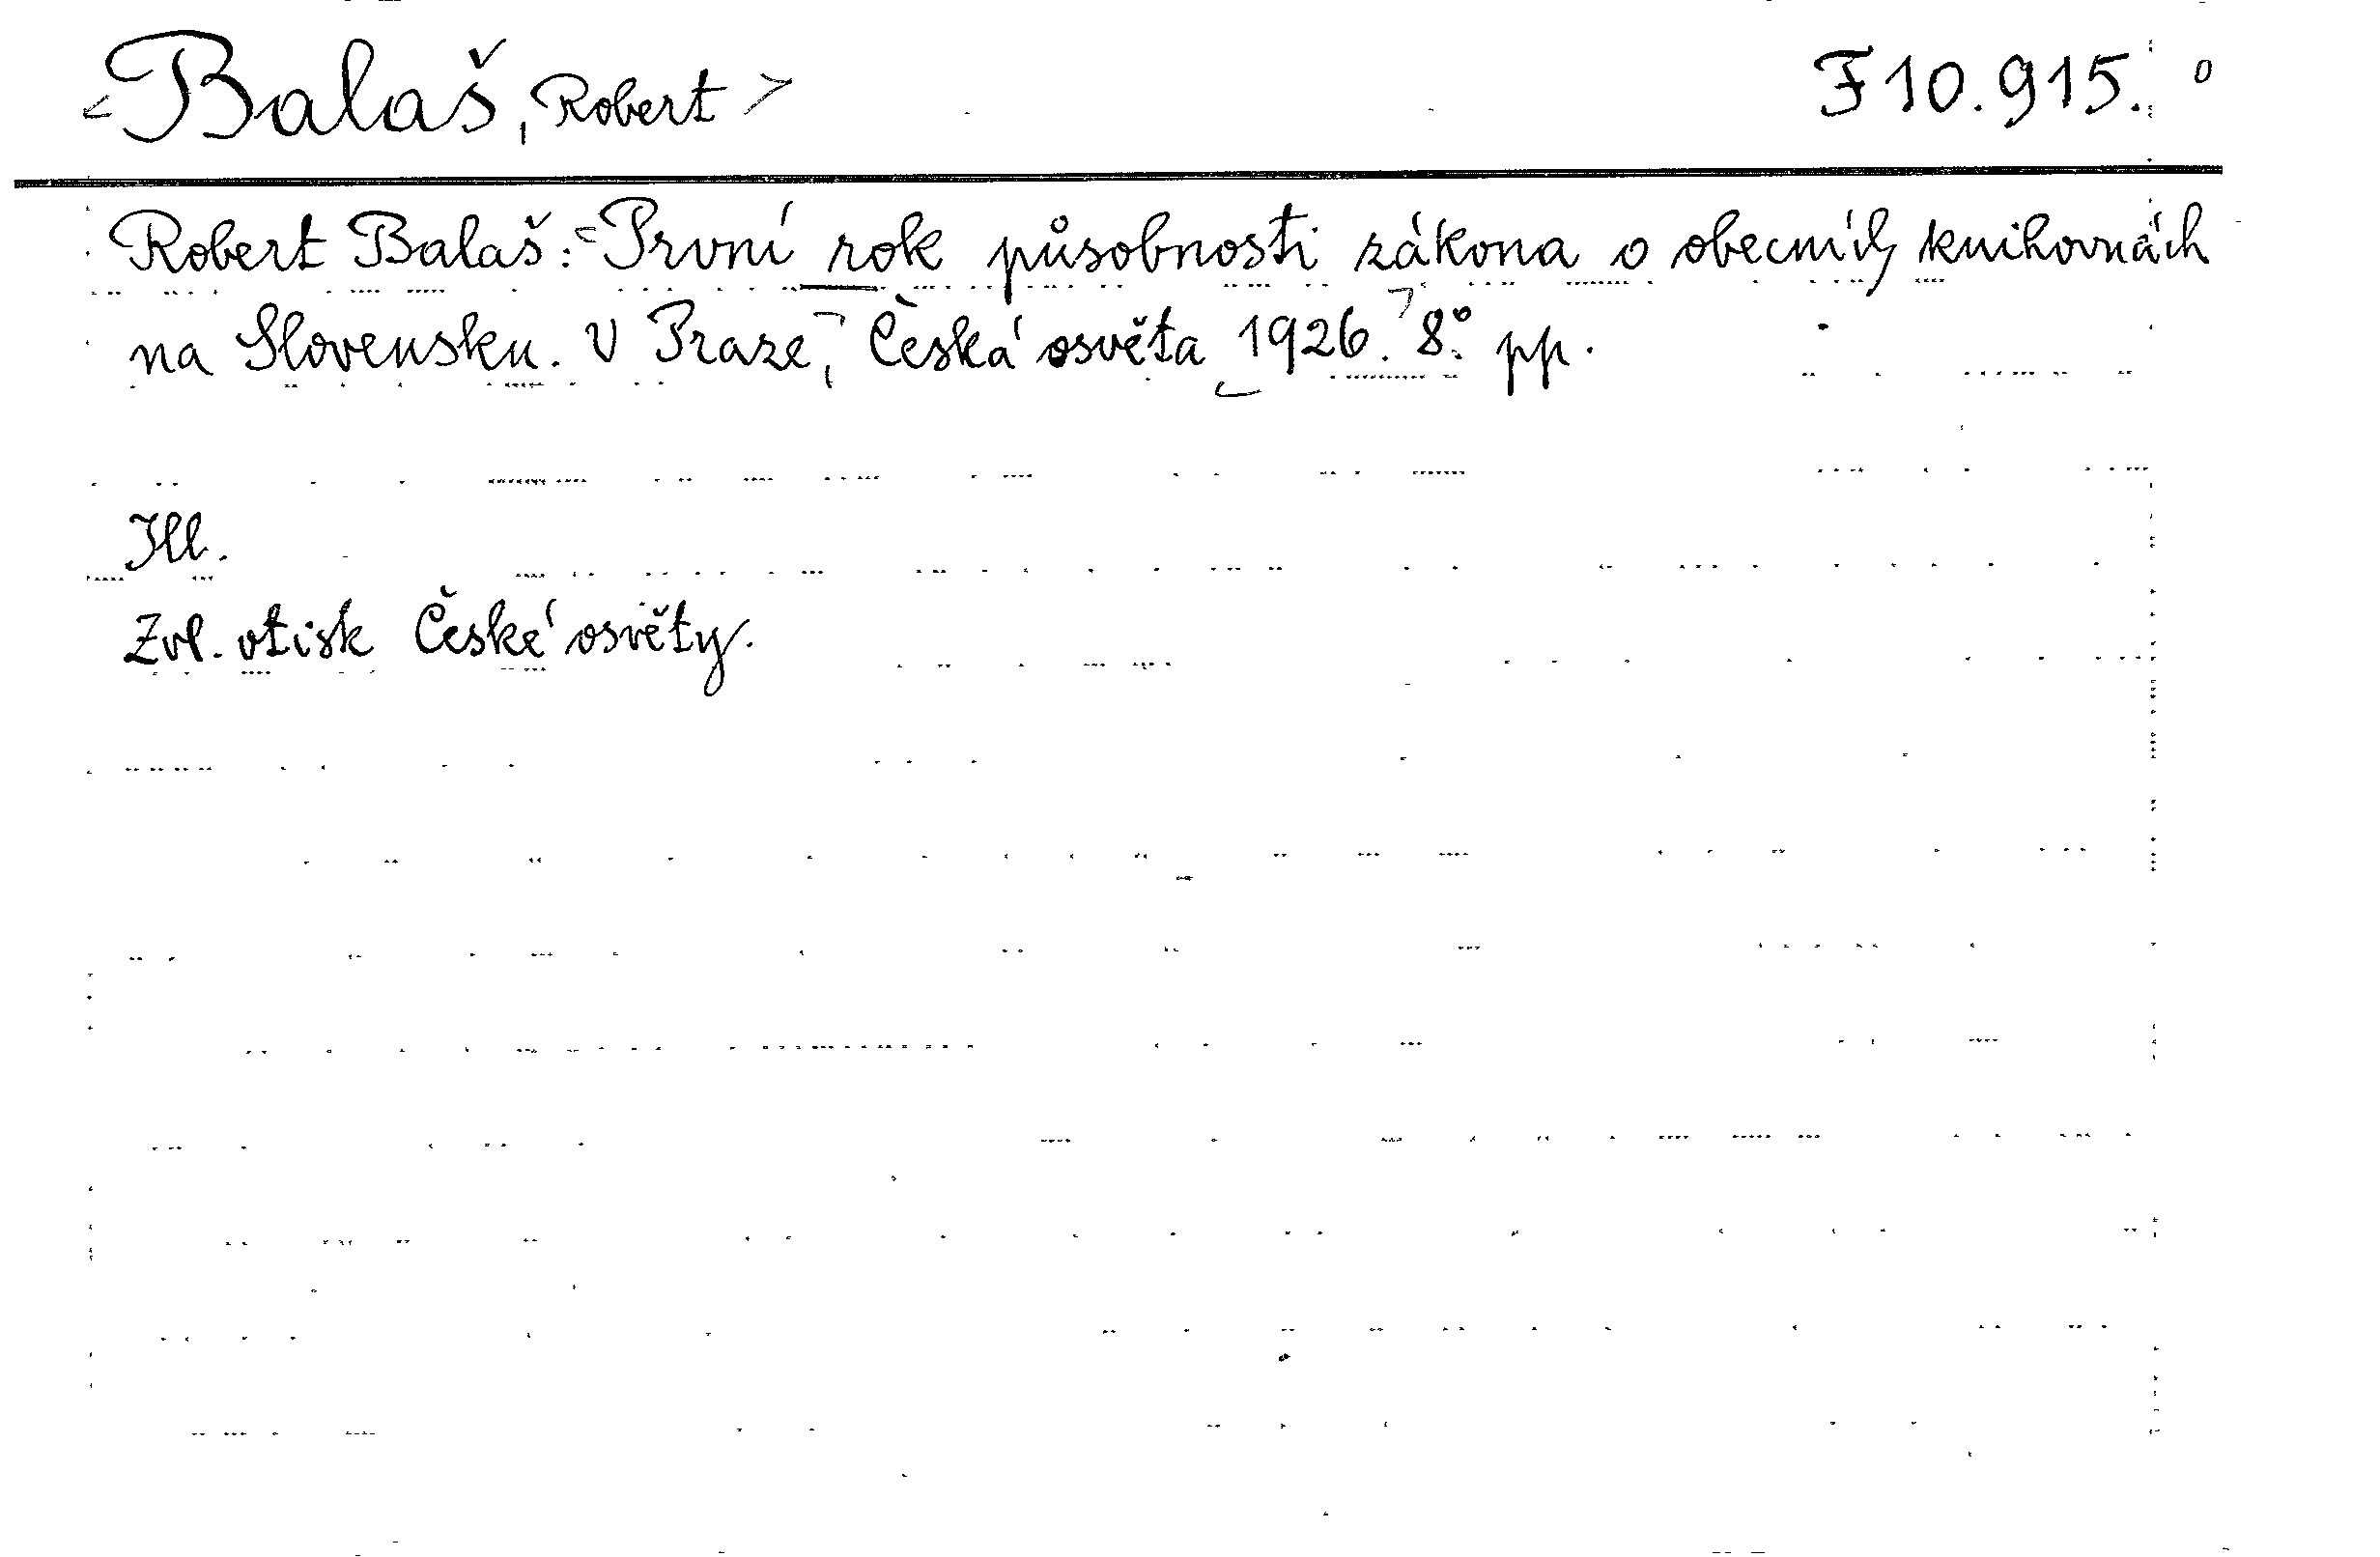 <Balaš, Robert> F 10.915. 0
Robert Balaš: <První rok působnosti zákona o obecních knihovnách
na Slovensku. V Praze, Česká osvěta 1926.> 8.° pp.
Ill.
Zvl. otisk České osvěty.